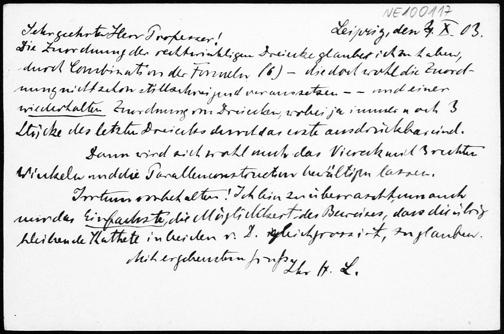 NE100117
Sehr geehrter Herr Professor! Leipzig, den X. 03.
Die Zuordnung der rechtwinkligen Dreiecke glaube ich zu haben,
durch Combination der Formeln (6) – die doch wohl die Zuord-
nung nicht schon stillschweigend voraussetzen – – und einer
wiederholten Zuordnung von Dreiecken, wobei ja immer noch 3
Stücke des letzten Dreiecks durch das erste ausdrückbar sind.
Dann wird sich wohl auch das Viereck mit 3 rechten
Winkeln und die Parallelconstruction bewältigen lassen.
Irrtum vorbehalten! Ich bin zu überrascht um auch
nur das Einfachste, die Möglichkeit des Beweises, dass die übrig
bleibende Kathete in beiden r. D. gleich gross ist, zu glauben.
Mit ergebenstem Gruss
Ihr H. L.